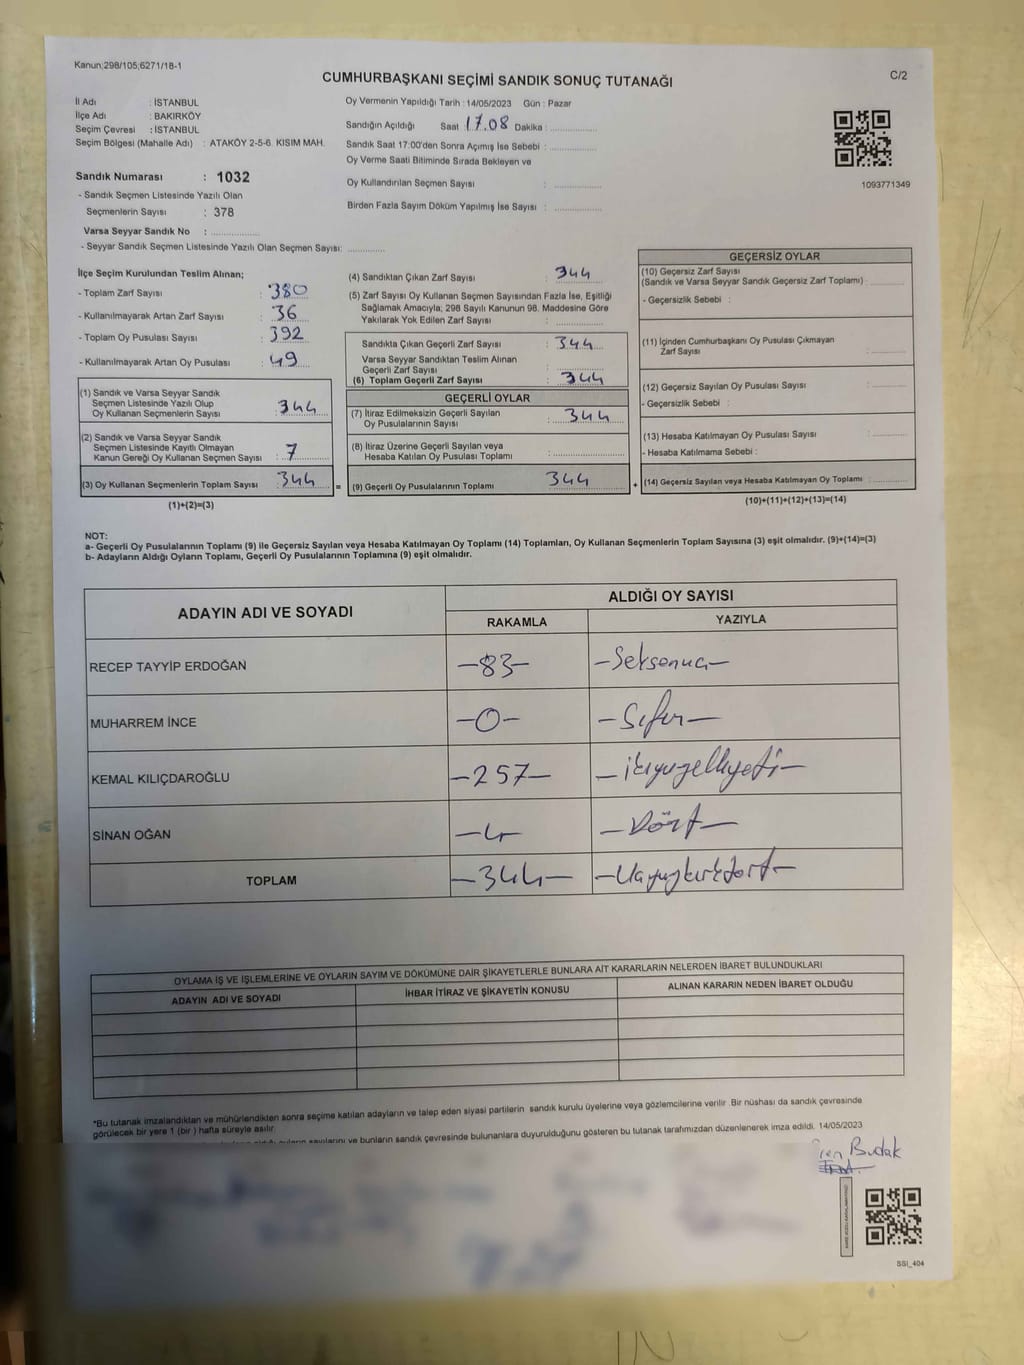 Kanun;298/105;6271/18-1
C/2
CUMHURBAŞKANI SEÇİMİ SANDIK SONUÇ TUTANAĞI
İl Adı : İSTANBUL
İlçe Adı : BAKIRKÖY
Seçim Çevresi : İSTANBUL
Seçim Bölgesi (Mahalle Adı) : ATAKÖY 2-5-6. KISIM MAH.
Sandık Numarası : 1032
- Sandık Seçmen Listesinde Yazılı Olan
Seçmenlerin Sayısı : 378
Varsa Seyyar Sandık No : ..................
- Seyyar Sandık Seçmen Listesinde Yazılı Olan Seçmen Sayısı: .............
Oy Vermenin Yapıldığı Tarih : 14/05/2023 Gün : Pazar
Sandığın Açıldığı Saat 17.08 Dakika : ..................
Sandık Saat 17:00'den Sonra Açımış İse Sebebi : ..................
Oy Verme Saati Bitiminde Sırada Bekleyen ve
Oy Kullandırılan Seçmen Sayısı : ..................
Birden Fazla Sayım Döküm Yapılmış İse Sayısı : ..................
1093771349
İlçe Seçim Kurulundan Teslim Alınan;
- Toplam Zarf Sayısı : 380
- Kullanılmayarak Artan Zarf Sayısı : 36
- Toplam Oy Pusulası Sayısı : 392
- Kullanılmayarak Artan Oy Pusulası : 49
(1) Sandık ve Varsa Seyyar Sandık
Seçmen Listesinde Yazılı Olup
Oy Kullanan Seçmenlerin Sayısı : 344
(2) Sandık ve Varsa Seyyar Sandık
Seçmen Listesinde Kayıtlı Olmayan
Kanun Gereği Oy Kullanan Seçmen Sayısı : 7
(3) Oy Kullanan Seçmenlerin Toplam Sayısı : 344
(1)+(2)=(3)
=
(4) Sandıktan Çıkan Zarf Sayısı : 344
(5) Zarf Sayısı Oy Kullanan Seçmen Sayısından Fazla İse, Eşitliği
Sağlamak Amacıyla; 298 Sayılı Kanunun 98. Maddesine Göre
Yakılarak Yok Edilen Zarf Sayısı : ..................
Sandıkta Çıkan Geçerli Zarf Sayısı : 344
Varsa Seyyar Sandıktan Teslim Alınan
Geçerli Zarf Sayısı : ..................
(6) Toplam Geçerli Zarf Sayısı : 344
GEÇERLİ OYLAR
(7) İtiraz Edilmeksizin Geçerli Sayılan
Oy Pusulalarının Sayısı : 344
(8) İtiraz Üzerine Geçerli Sayılan veya
Hesaba Katılan Oy Pusulası Toplamı : ..................
(9) Geçerli Oy Pusulalarının Toplamı : 344
+
GEÇERSİZ OYLAR
(10) Geçersiz Zarf Sayısı
(Sandık ve Varsa Seyyar Sandık Geçersiz Zarf Toplamı) : ..........
- Geçersizlik Sebebi :
(11) İçinden Cumhurbaşkanı Oy Pusulası Çıkmayan
Zarf Sayısı : ..........
(12) Geçersiz Sayılan Oy Pusulası Sayısı : ..........
- Geçersizlik Sebebi :
(13) Hesaba Katılmayan Oy Pusulası Sayısı : ..........
- Hesaba Katılmama Sebebi :
(14) Geçersiz Sayılan veya Hesaba Katılmayan Oy Toplamı : ..........
(10)+(11)+(12)+(13)=(14)
NOT:
a- Geçerli Oy Pusulalarının Toplamı (9) ile Geçersiz Sayılan veya Hesaba Katılmayan Oy Toplamı (14) Toplamları, Oy Kullanan Seçmenlerin Toplam Sayısına (3) eşit olmalıdır. (9)+(14)=(3)
b- Adayların Aldığı Oyların Toplamı, Geçerli Oy Pusulalarının Toplamına (9) eşit olmalıdır.
ADAYIN ADI VE SOYADI
ALDIĞI OY SAYISI
RAKAMLA YAZIYLA
RECEP TAYYİP ERDOĞAN -83- -Seksenüç-
MUHARREM İNCE -0- -Sıfır-
KEMAL KILIÇDAROĞLU -257- -ikiyüzelliyedi-
SİNAN OĞAN -4- -Dört-
TOPLAM -344- -Üçyüzkırkdört-
OYLAMA İŞ VE İŞLEMLERİNE VE OYLARIN SAYIM VE DÖKÜMÜNE DAİR ŞİKAYETLERLE BUNLARA AİT KARARLARIN NELERDEN İBARET BULUNDUKLARI
ADAYIN ADI VE SOYADI İHBAR İTİRAZ VE ŞİKAYETİN KONUSU ALINAN KARARIN NEDEN İBARET OLDUĞU
*Bu tutanak imzalandıktan ve mühürlendikten sonra seçime katılan adayların ve talep eden siyasi partilerin sandık kurulu üyelerine veya gözlemcilerine verilir. Bir nüshası da sandık çevresinde
görülecek bir yere 1 (bir ) hafta süreyle asılır.
sayılarını ve bunların sandık çevresinde bulunanlara duyurulduğunu gösteren bu tutanak tarafımızdan düzenlenerek imza edildi. 14/05/2023
Budak
SSI_404